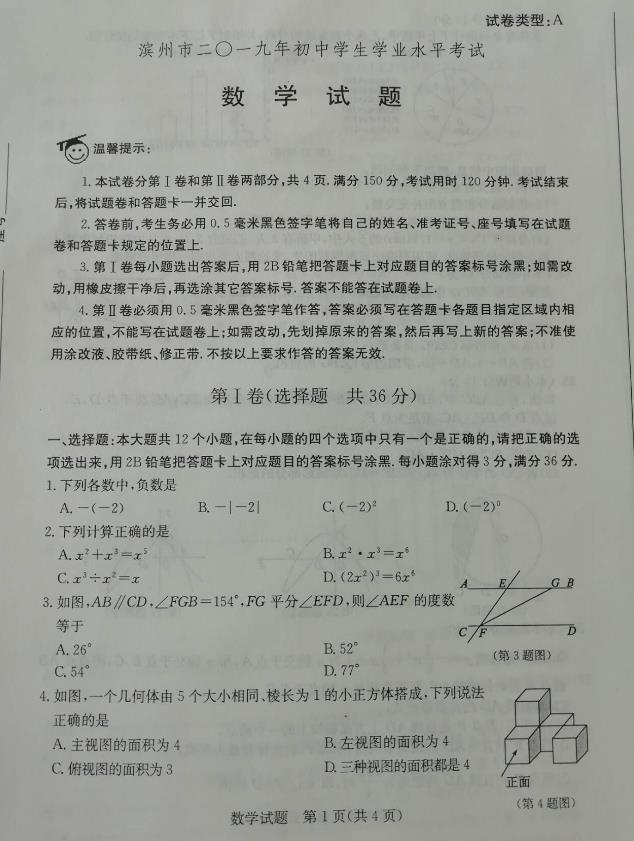 试卷类型:A
滨州市二〇一九年初中学生学业水平考试
数 学 试 题
温馨提示:
1. 本试卷分第Ⅰ卷和第Ⅱ卷两部分,共 4 页. 满分 150 分,考试用时 120 分钟. 考试结束
后,将试题卷和答题卡一并交回.
2. 答卷前,考生务必用 0.5 毫米黑色签字笔将自己的姓名、准考证号、座号填写在试题
卷和答题卡规定的位置上.
3. 第Ⅰ卷每小题选出答案后,用 2B 铅笔把答题卡上对应题目的答案标号涂黑;如需改
动,用橡皮擦干净后,再选涂其它答案标号. 答案不能答在试题卷上.
4. 第Ⅱ卷必须用 0.5 毫米黑色签字笔作答,答案必须写在答题卡各题目指定区域内相
应的位置,不能写在试题卷上;如需改动,先划掉原来的答案,然后再写上新的答案;不准使
用涂改液、胶带纸、修正带. 不按以上要求作答的答案无效.
第Ⅰ卷(选择题 共 36 分)
一、选择题:本大题共 12 个小题,在每小题的四个选项中只有一个是正确的,请把正确的选
项选出来,用 2B 铅笔把答题卡上对应题目的答案标号涂黑. 每小题涂对得 3 分,满分 36 分.
1. 下列各数中,负数是
A. −(−2) B. −|−2| C. (−2)² D. (−2)⁰
2. 下列计算正确的是
A. x²+x³=x⁵ B. x²·x³=x⁶
C. x³÷x²=x D. (2x²)³=6x⁶
3. 如图,AB∥CD,∠FGB=154°,FG 平分∠EFD,则∠AEF 的度数
等于
A. 26° B. 52°
C. 54° D. 77°
A E G B
C F D
(第 3 题图)
4. 如图,一个几何体由 5 个大小相同、棱长为 1 的小正方体搭成,下列说法
正确的是
A. 主视图的面积为 4 B. 左视图的面积为 4
C. 俯视图的面积为 3 D. 三种视图的面积都是 4
正面
(第 4 题图)
数学试题 第 1 页(共 4 页)